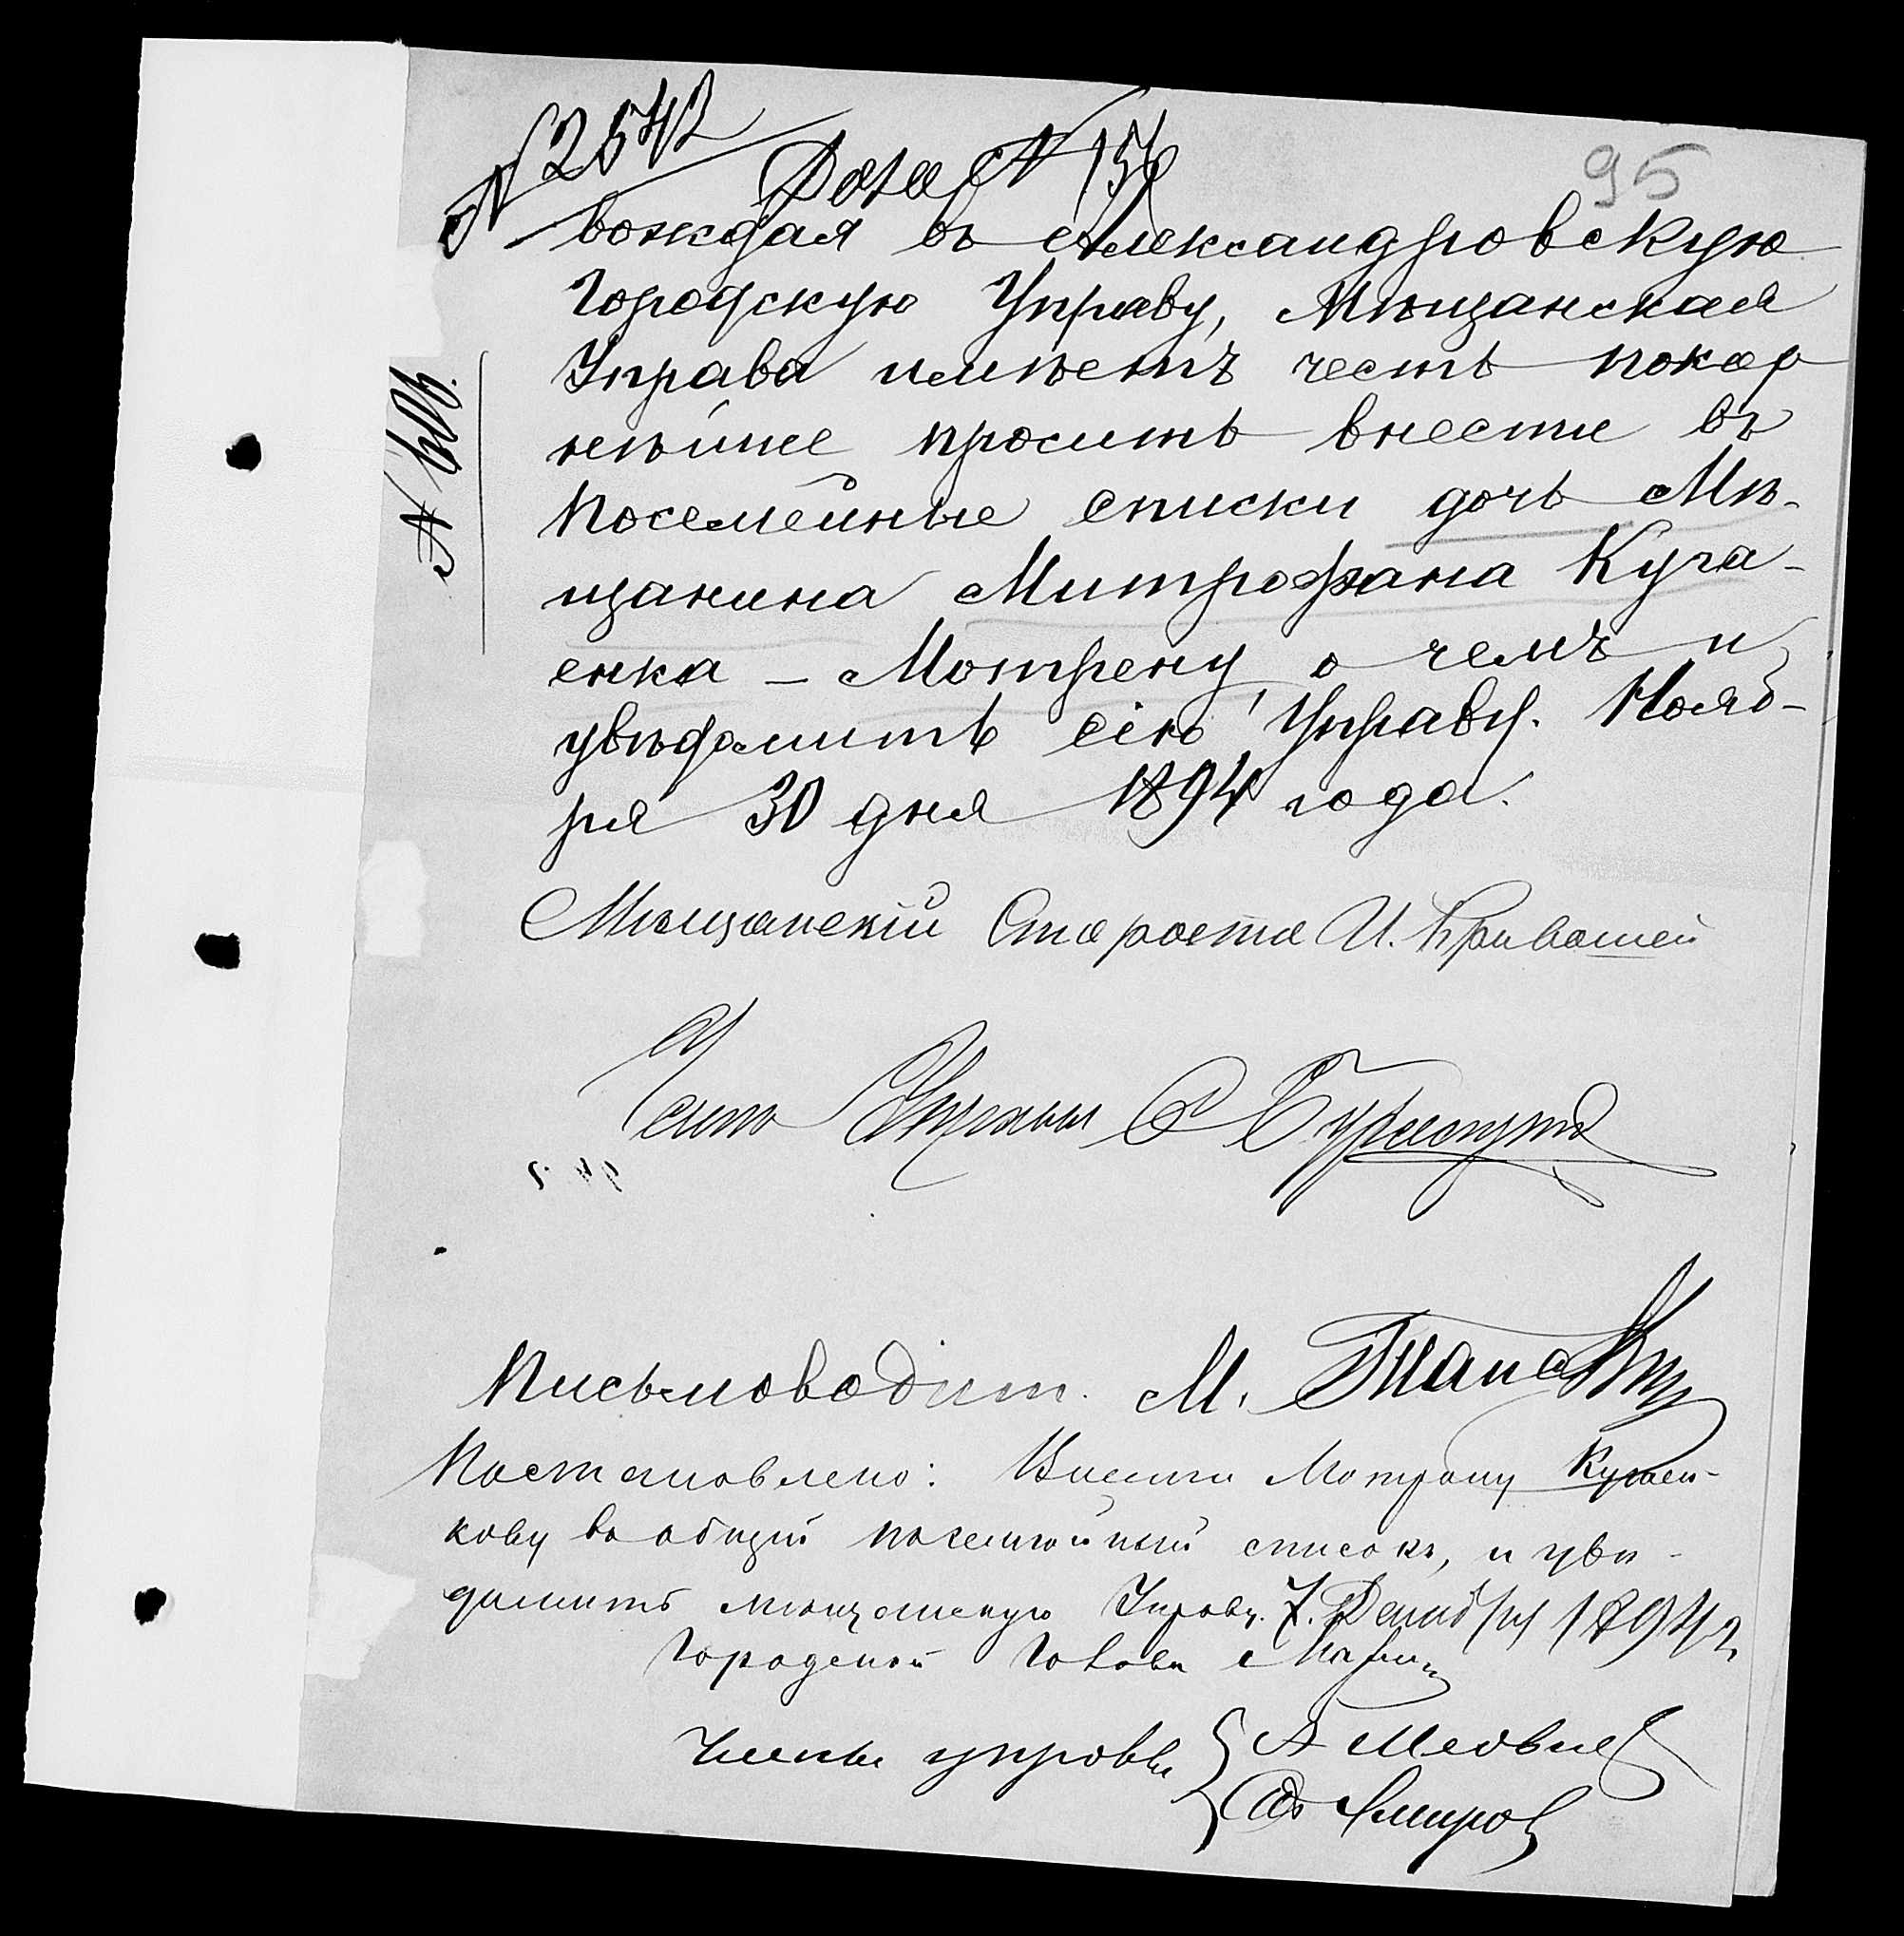 № 2542
№ 156
95
вождая въ Александровскую
Городскую Управу, Мѣщанская
Управа имѣетъ честь покор
нѣйше просить внести въ
посемейные списки дочь Мѣ-
щанина Митрофана Куча-
енка – Мотрену, о чемъ и
увѣдомить сію Управу. Нояб-
ря 30 дня 1894 года.
Мѣщанскій Староста И.
Члены Управы
Письмоводит. М.
Постановлено: Внести Мотрону
кову въ общій посемейный списокъ, и увѣ-
домить мѣщанскую Управу. 7. Декабря 1894 г
Городской Голова
Члены управы